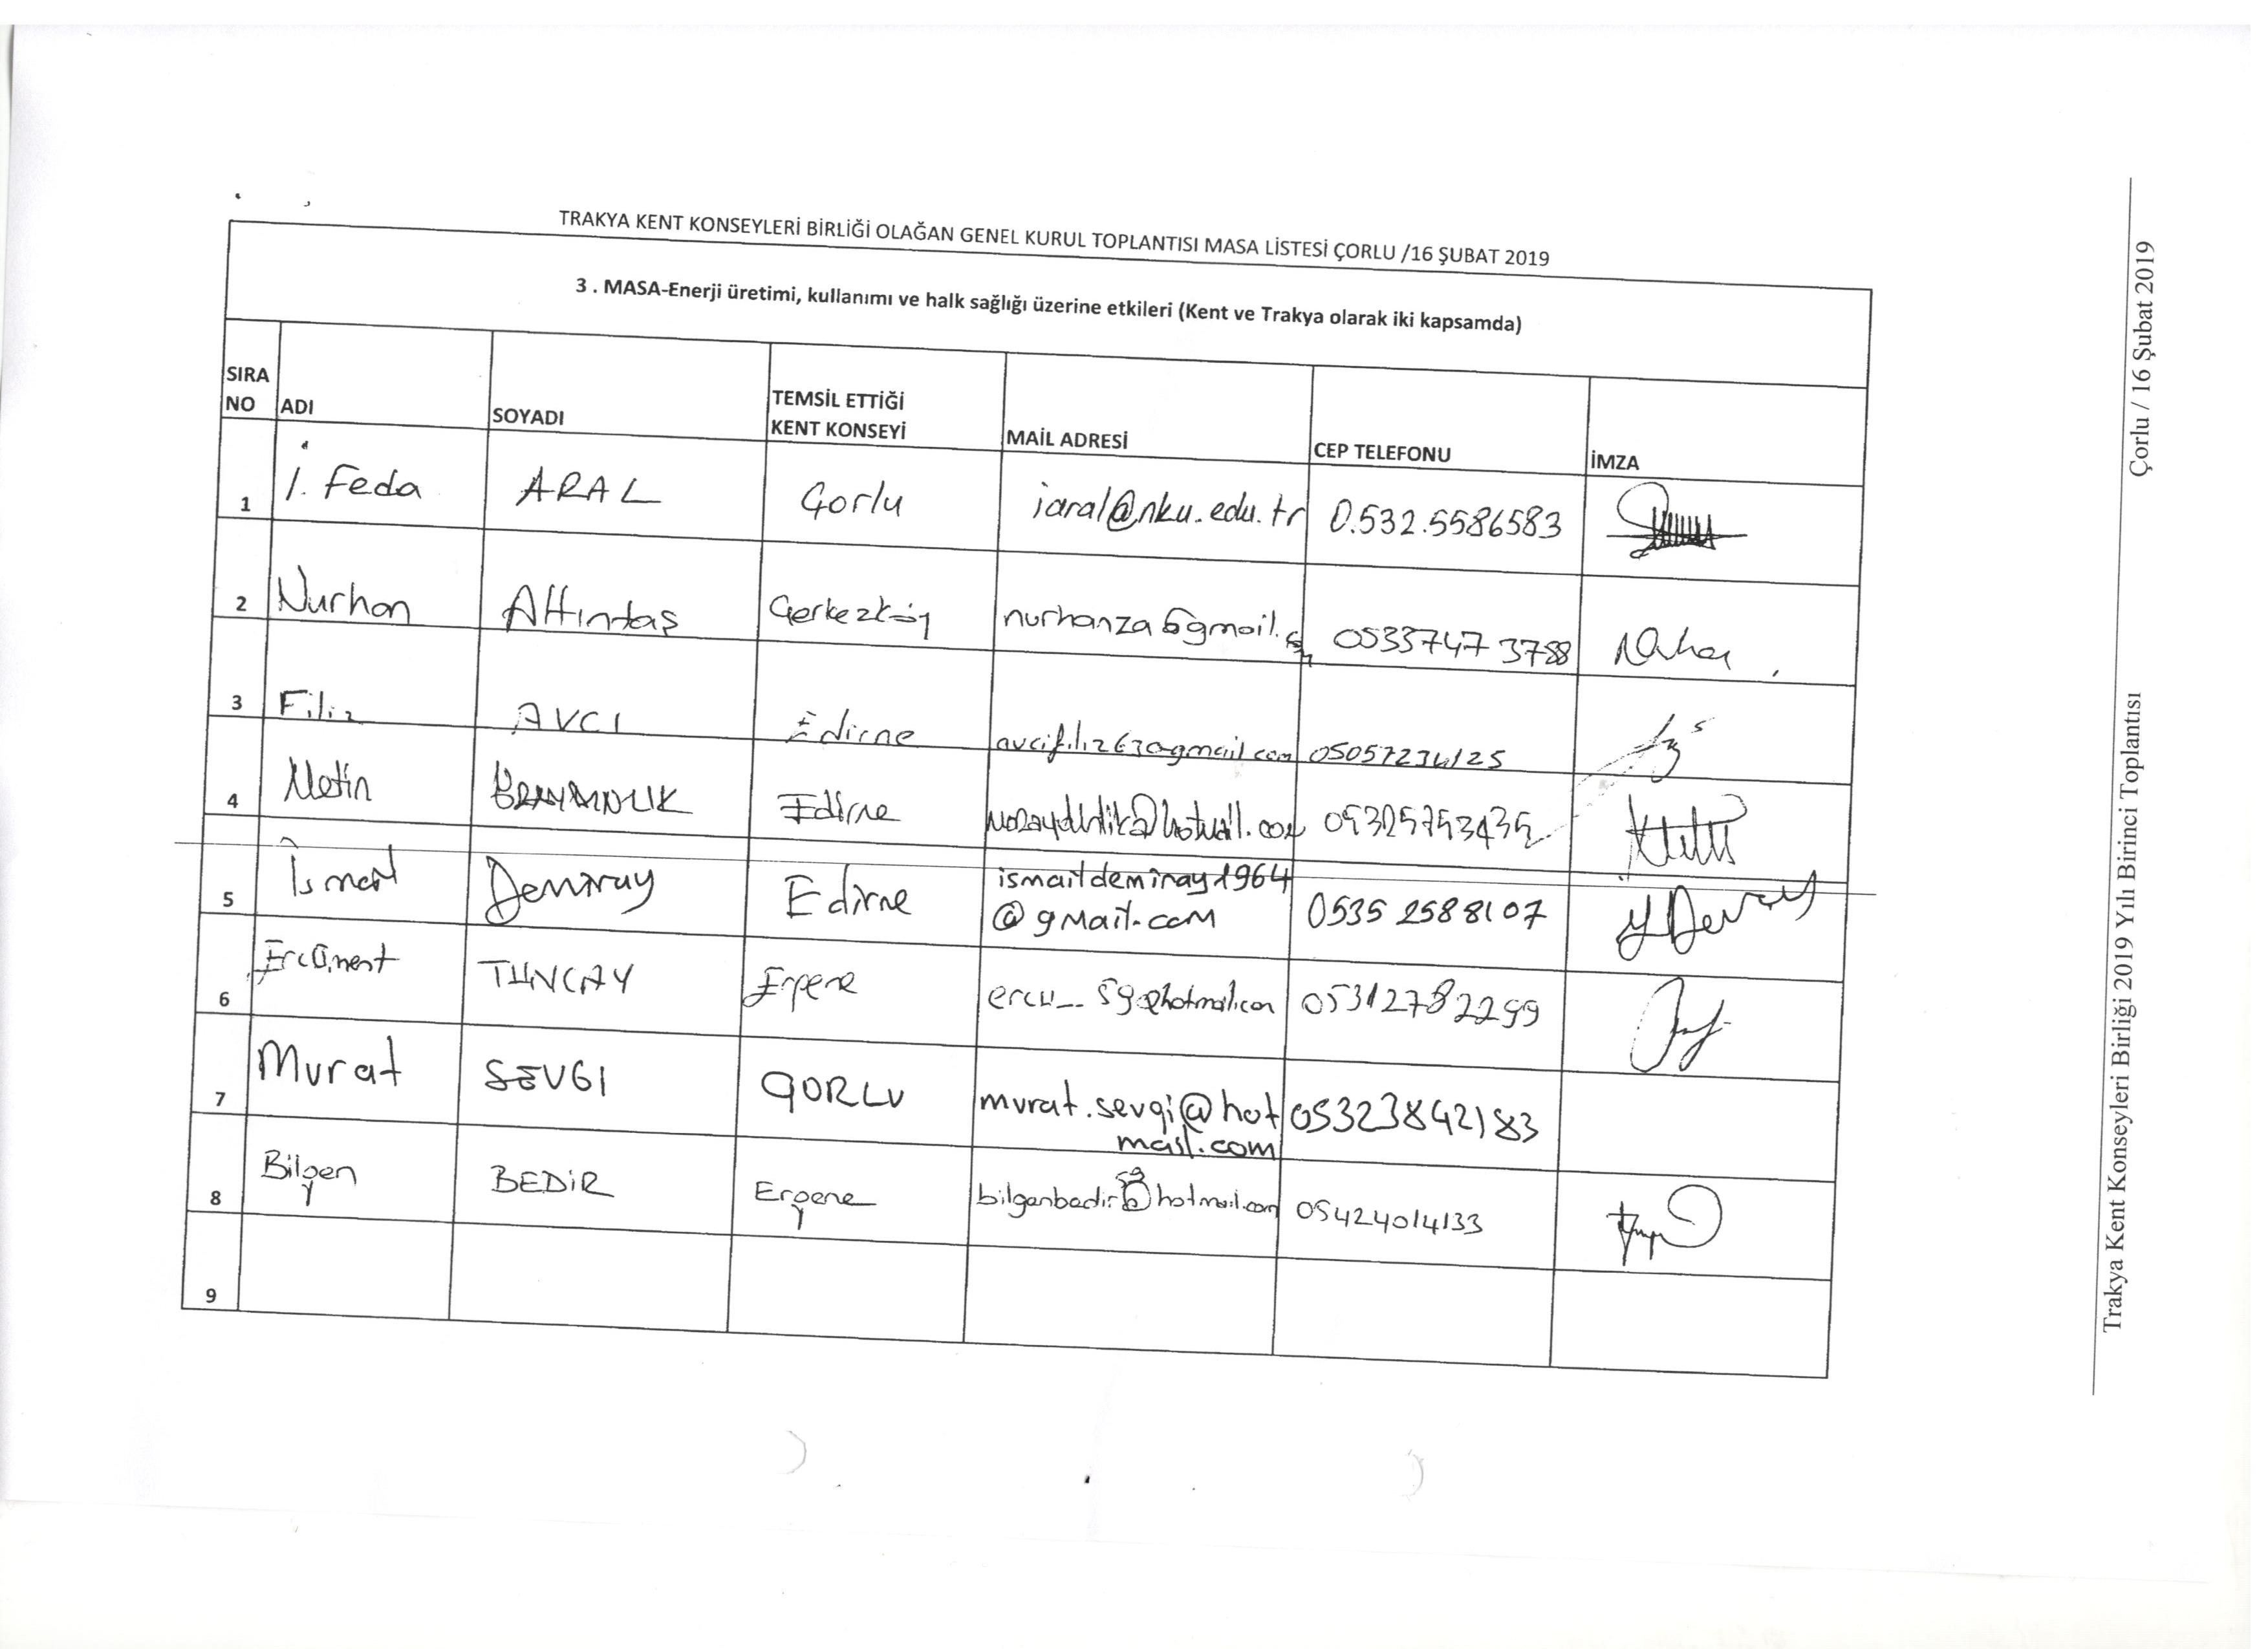 TRAKYA KENT KONSEYLERİ BİRLİĞİ OLAĞAN GENEL KURUL TOPLANTISI MASA LİSTESİ ÇORLU /16 ŞUBAT 2019
3 . MASA-Enerji üretimi, kullanımı ve halk sağlığı üzerine etkileri (Kent ve Trakya olarak iki kapsamda)
SIRA NO ADI SOYADI TEMSİL ETTİĞİ KENT KONSEYİ MAİL ADRESİ CEP TELEFONU İMZA
1 İ. Feda ARAL Çorlu iaral@nku.edu.tr 0.532.5586583
2 Nurhan Altıntaş Çerkezköy 0533747 3788
3 Filiz AVCI Edirne
4 Metin Edirne
5 İsmail Demiray Edirne ismaildemiray1964
@gmail.com 0535 2588107
6 TUNCAY Ergene 05312782299
7 Murat SEVGİ ÇORLU murat.sevgi@hot 05323842183
mail.com
8 Bilgen BEDİR Ergene 05424014133
9
Trakya Kent Konseyleri Birliği 2019 Yılı Birinci Toplantısı Çorlu / 16 Şubat 2019